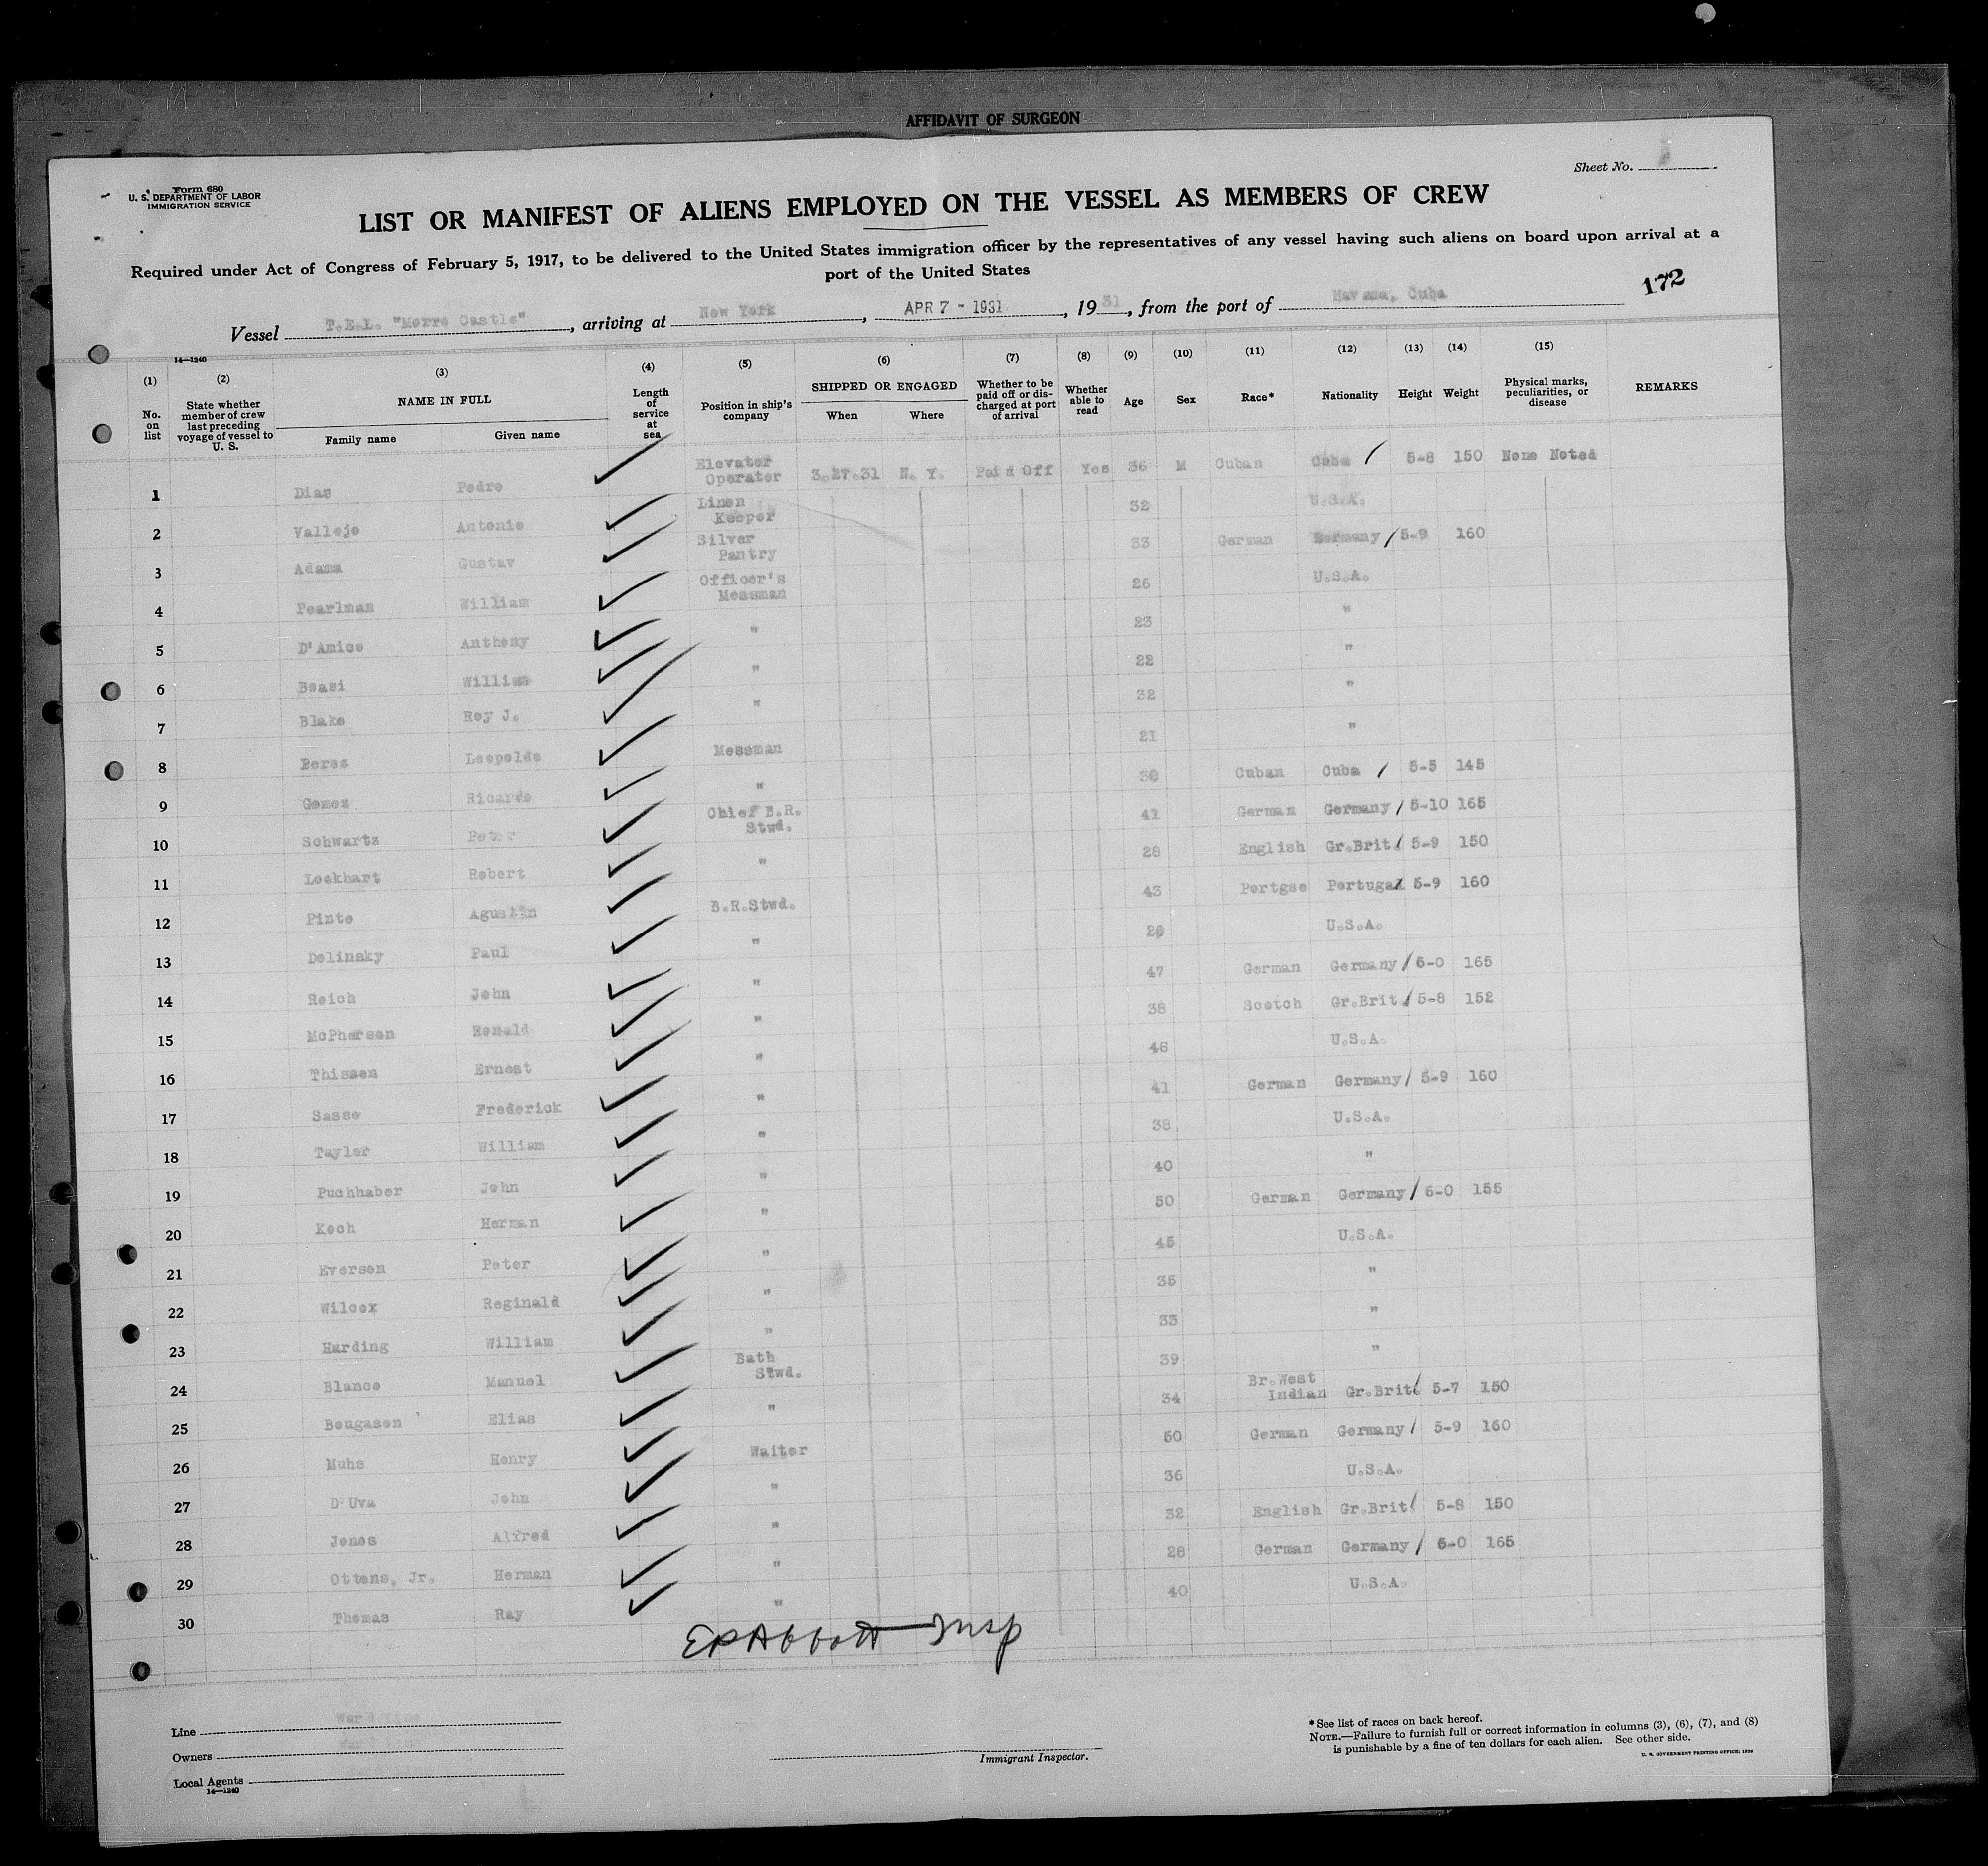 AFFIDAVIT OF SURGEON
Sheet No.
Form 680
U. S. DEPARTMENT OF LABOR
IMMIGRATION SERVICE
LIST OR MANIFEST OF ALIENS EMPLOYED ON THE VESSEL AS MEMBERS OF CREW
Required under Act of Congress of February 5, 1917, to be delivered to the United States immigration officer by the representatives of any vessel having such aliens on board upon arrival at a
port of the United States
172
Vessel T.E.L. "Morro Castle", arriving at New York, APR 7 - 1931, 1931, from the port of Havana, Cuba
14—1240
(1) (2) (3) (4) (5) (6) (7) (8) (9) (10) (11) (12) (13) (14) (15)
No. on list | State whether member of crew last preceding voyage of vessel to U. S. | NAME IN FULL | Family name | Given name | Length of service at sea | Position in ship's company | SHIPPED OR ENGAGED | When | Where | Whether to be paid off or discharged at port of arrival | Whether able to read | Age | Sex | Race* | Nationality | Height | Weight | Physical marks, peculiarities, or disease | REMARKS
1 Dias Pedro Elevator Operator 3.27.31 N. Y. Paid Off Yes 36 M Cuban Cuba 5-8 150 None Noted
2 Vallejo Antonio Linen Keeper 32 U.S.A.
3 Adams Gustav Silver Pantry 33 German Germany 5-9 160
4 Pearlman William Officer's Messman 26 U.S.A.
5 D'Amico Anthony " 23 "
6 Beasi William " 22 "
7 Blake Roy J. " 32 "
8 Perez Leopoldo Messman 21 "
9 Gomez Ricardo " 30 Cuban Cuba 5-5 145
10 Schwartz Peter Chief B.R. Stwd. 41 German Germany 5-10 165
11 Lockhart Robert " 28 English Gr.Brit 5-9 150
12 Pinto Agustin B.R.Stwd. 43 Portgse Portugal 5-9 160
13 Dolinsky Paul " 26 U.S.A.
14 Reich John " 47 German Germany 6-0 165
15 McPherson Ronald " 38 Scotch Gr.Brit 5-8 152
16 Thissen Ernest " 46 U.S.A.
17 Sasse Frederick " 41 German Germany 5-9 160
18 Taylor William " 38 U.S.A.
19 Puchhaber John " 40 "
20 Koch Herman " 50 German Germany 6-0 155
21 Everson Peter " 45 U.S.A.
22 Wilcox Reginald " 35 "
23 Harding William " 33 "
24 Blanco Manuel Bath Stwd. 39 "
25 Bougason Elias " 34 Br.West Indian Gr.Brit 5-7 150
26 Muhs Henry Waiter 50 German Germany 5-9 160
27 D'Uva John " 36 U.S.A.
28 Jones Alfred " 32 English Gr.Brit 5-8 150
29 Ottens, Jr. Herman " 28 German Germany 6-0 165
30 Thomas Ray " 40 U.S.A.
EPAbbott Insp
Line Ward Line
Owners
Local Agents
14—1240
Immigrant Inspector.
*See list of races on back hereof.
NOTE.—Failure to furnish full or correct information in columns (3), (6), (7), and (8)
is punishable by a fine of ten dollars for each alien. See other side.
U. S. GOVERNMENT PRINTING OFFICE: 1930